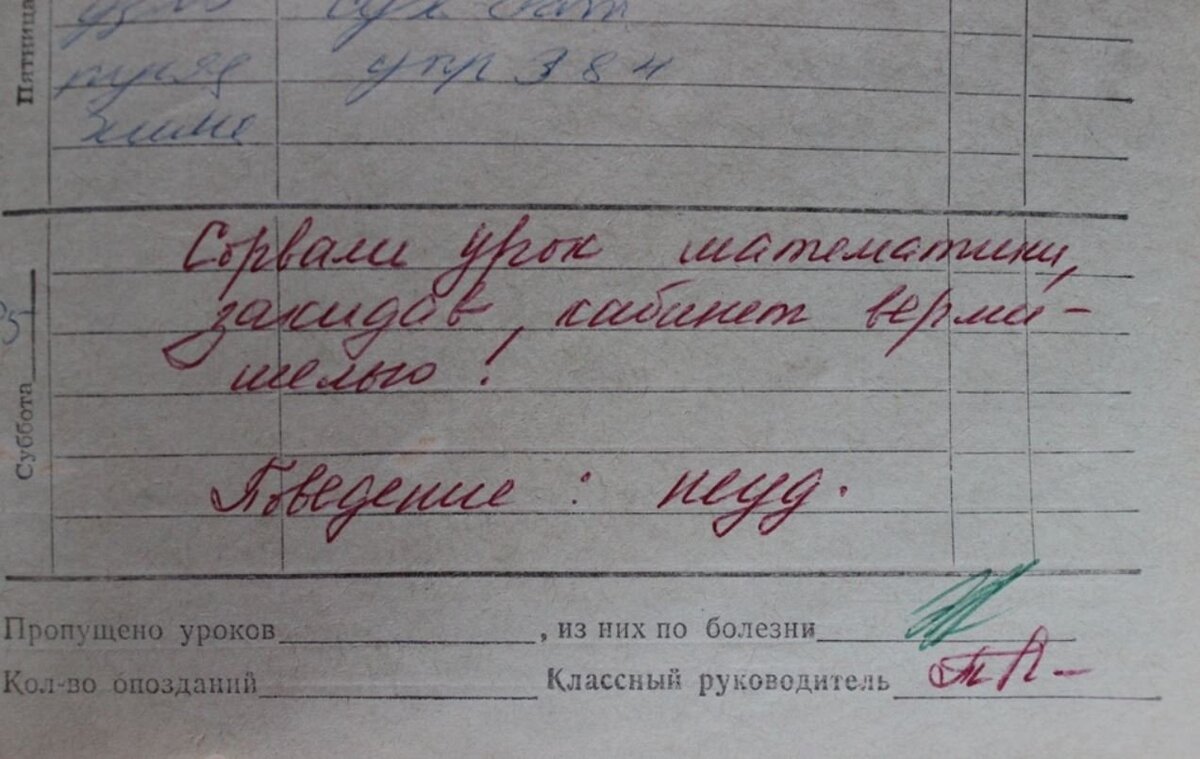 Пятница
упр 384
химия
Сорвали урок математики,
закидав кабинет верми-
шелью!
Суббота
Поведение: неуд.
Пропущено уроков , из них по болезни
Кол-во опозданий Классный руководитель